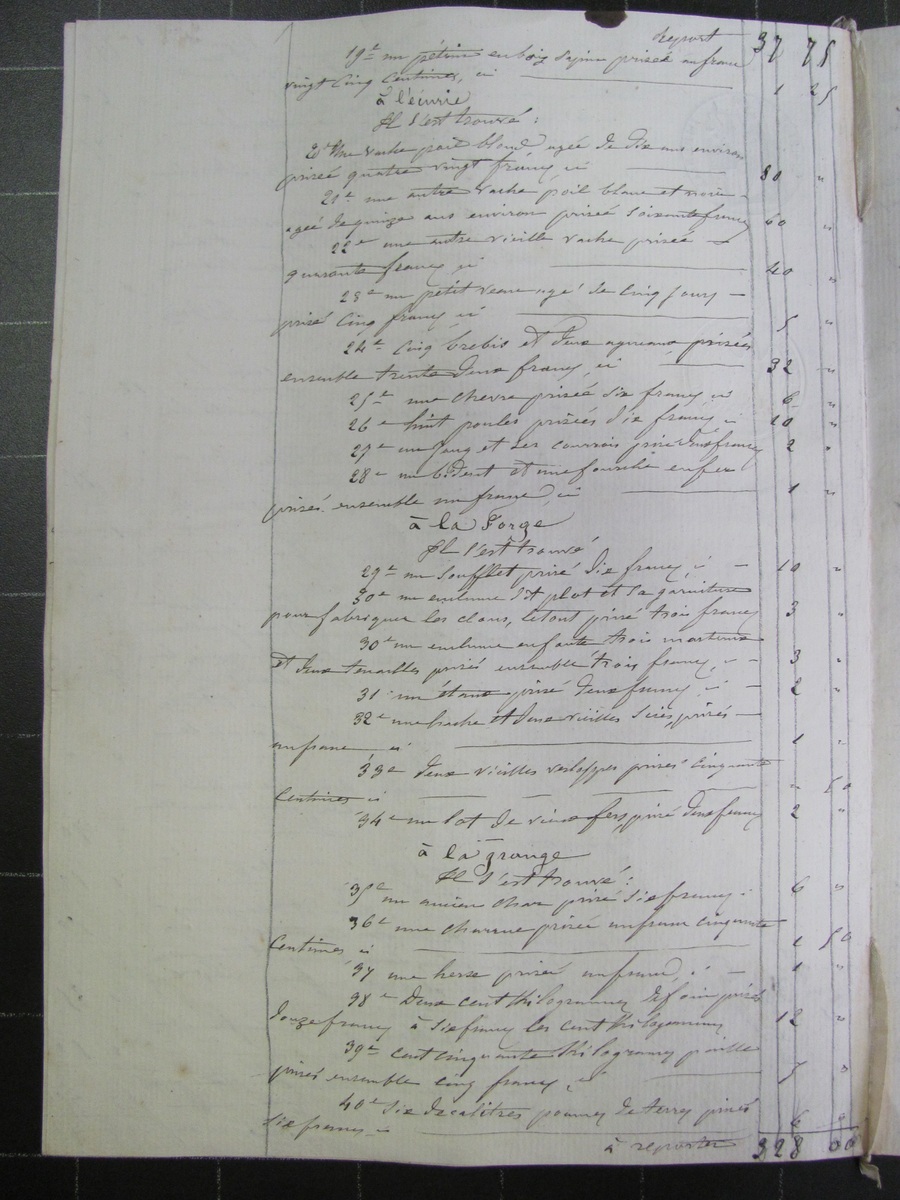 Report 37 75
19° un pétrin en bois sapin prisé un franc
vingt cinq centimes, ci 1 25
à l'écurie
Il s'est trouvé :
20° Une vache poil blond agée de dix ans environ
prisée quatre vingt francs ci 80 "
21° une autre vache poil blanc et noir
agée de quinze ans environ prisée soixante francs 60 "
22° une autre vieille vache prisée
quarante francs ci 40 "
23° un petit veau agé de cinq jours
prisé cinq francs ci 5 "
24° cinq brebis et deux agneaux prisés
ensemble trente deux francs ci 32 "
25° une chevre prisée six francs ci 6 "
26° huit poules prisées dix francs ci 10 "
27° un joug et ses courrois prisé deux francs 2 "
28° un bident et une fourche en fer
prisés ensemble un franc, ci 1 "
à la Forge
Il s'est trouvé
29° un soufflet prisé dix francs, ci 10 "
30° un enclume dit plot et sa garniture
pour fabriquer les clous, le tout prisé trois francs 3 "
30° un enclume en fonte trois marteaux
et deux tenailles prisé ensemble trois francs, ci 3 "
31° un étaux prisé deux francs, ci 2 "
32° une hache et deux vieilles scies, prisés
un franc ci 1 "
33° deux vieilles varloppes prisés cinquante
centimes ci " 50
34° un lot de vieux fers, prisé deux francs 2 "
à la grange
Il s'est trouvé :
35° un ancien char prisé six francs. 6 "
36° une charrue prisée un franc cinquante
centimes ci 1 50
37 une herse prisée un franc, ci 1 "
38° Deux cent kilogrammes de foin prisés
douze francs à six francs les cent kilogrammes 12 "
39° cent cinquante kilogrammes paille
prisés ensemble cinq francs, ci 5 "
40° six decalitres pommes de terres prisés
six francs ci 6 "
à reporter 328 00